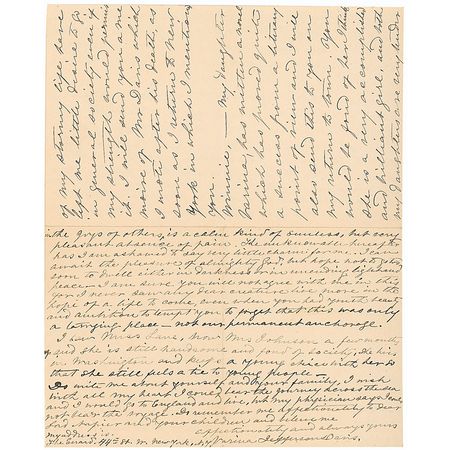 of my stormy life, have
left me little desire to go
in general society even if
my strength would permit
it. I will send you a me
moire of Mr Davis which
I wrote after his death, as
soon as I return to New
York in which I mention
you.
Winnie, — my daughter
has written a novel
which has proved quite
success from a literary
point of view and I will
also send this to you on
my return to town. You
would be fond of her I think
she is a very accomplished
and brilliant girl, and both
my daughters are very tender
the joys of others, is a calm kind of
pleasant absence of pain. The unknowable hereafter
has I am ashamed to say very little charm for me. I am
await the pleasure of almighty God but hope not to
soon to dwell either in darkness or in unending light and
peace. I am sure you will not agree with me in this
for I never saw any dear creature more in the
hope of a life to come, even when you had youth beauty
and ambition to tempt you to forget that this was only
a tarrying place — not our permanent anchorage.
I saw Miss Lane, now Mrs Johnson a few months
and she is still handsome and fond of society. She lives
in Washington and has a young niece with her so
that she still feels a tie to young people —
Do write me about yourself and your family, I wish
with all my heart I could bear the journey across the sea
and I would go to England and live, but my physician says I could
not bear the voyage. Do remember me affectionately to dear
Lord Napier and your children and believe me
affectionately and always yours
my address is
The Gerard. 44th St. W. New York, N.Y. Varina Jefferson Davis.